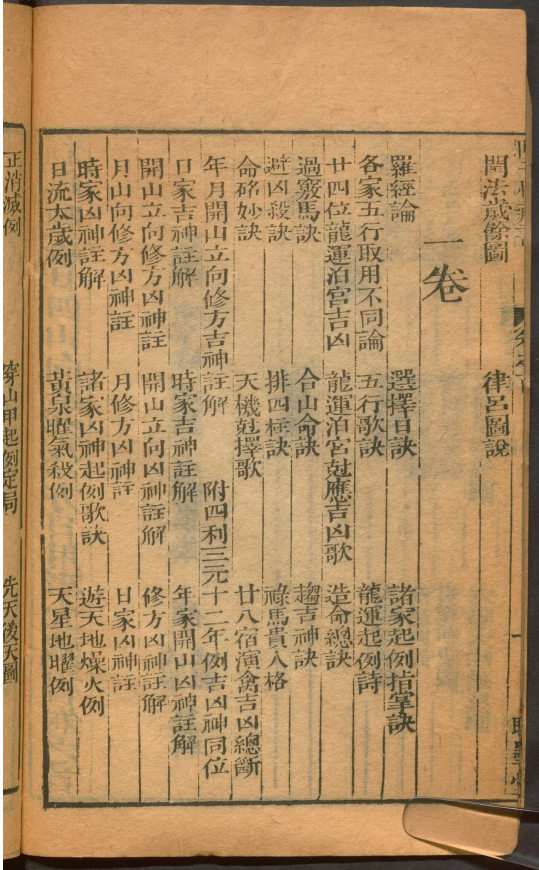 閏法歲餘圖 律呂圖說
一卷
羅經論 選擇日訣 諸家起例指掌訣
各家五行取用不同論 五行歌訣 龍運起例詩
廿四位龍運泊宮吉凶 龍運泊宮尅應吉凶歌 造命總訣
過竅馬訣 合山命訣 趨吉神訣
避凶殺訣 排四柱訣 祿馬貴人格
命硲妙訣 天機尅擇歌 廿八宿演禽吉凶總斷
年月開山立向修方吉神註解 附四利三元十二年例吉凶神同位
日家吉神註解 時家吉神註解 年家開山凶神註解
開山立向修方凶神註 開山立向凶神註解 修方凶神註解
月山向修方凶神註 月修方凶神註 日家凶神註
時家凶神註解 諸家凶神起例歌訣 遊天地燥火例
日流太歲例 黃泉曜氣殺例 天星地曜例
正消滅例 穿山甲起例定局 先天後天圖